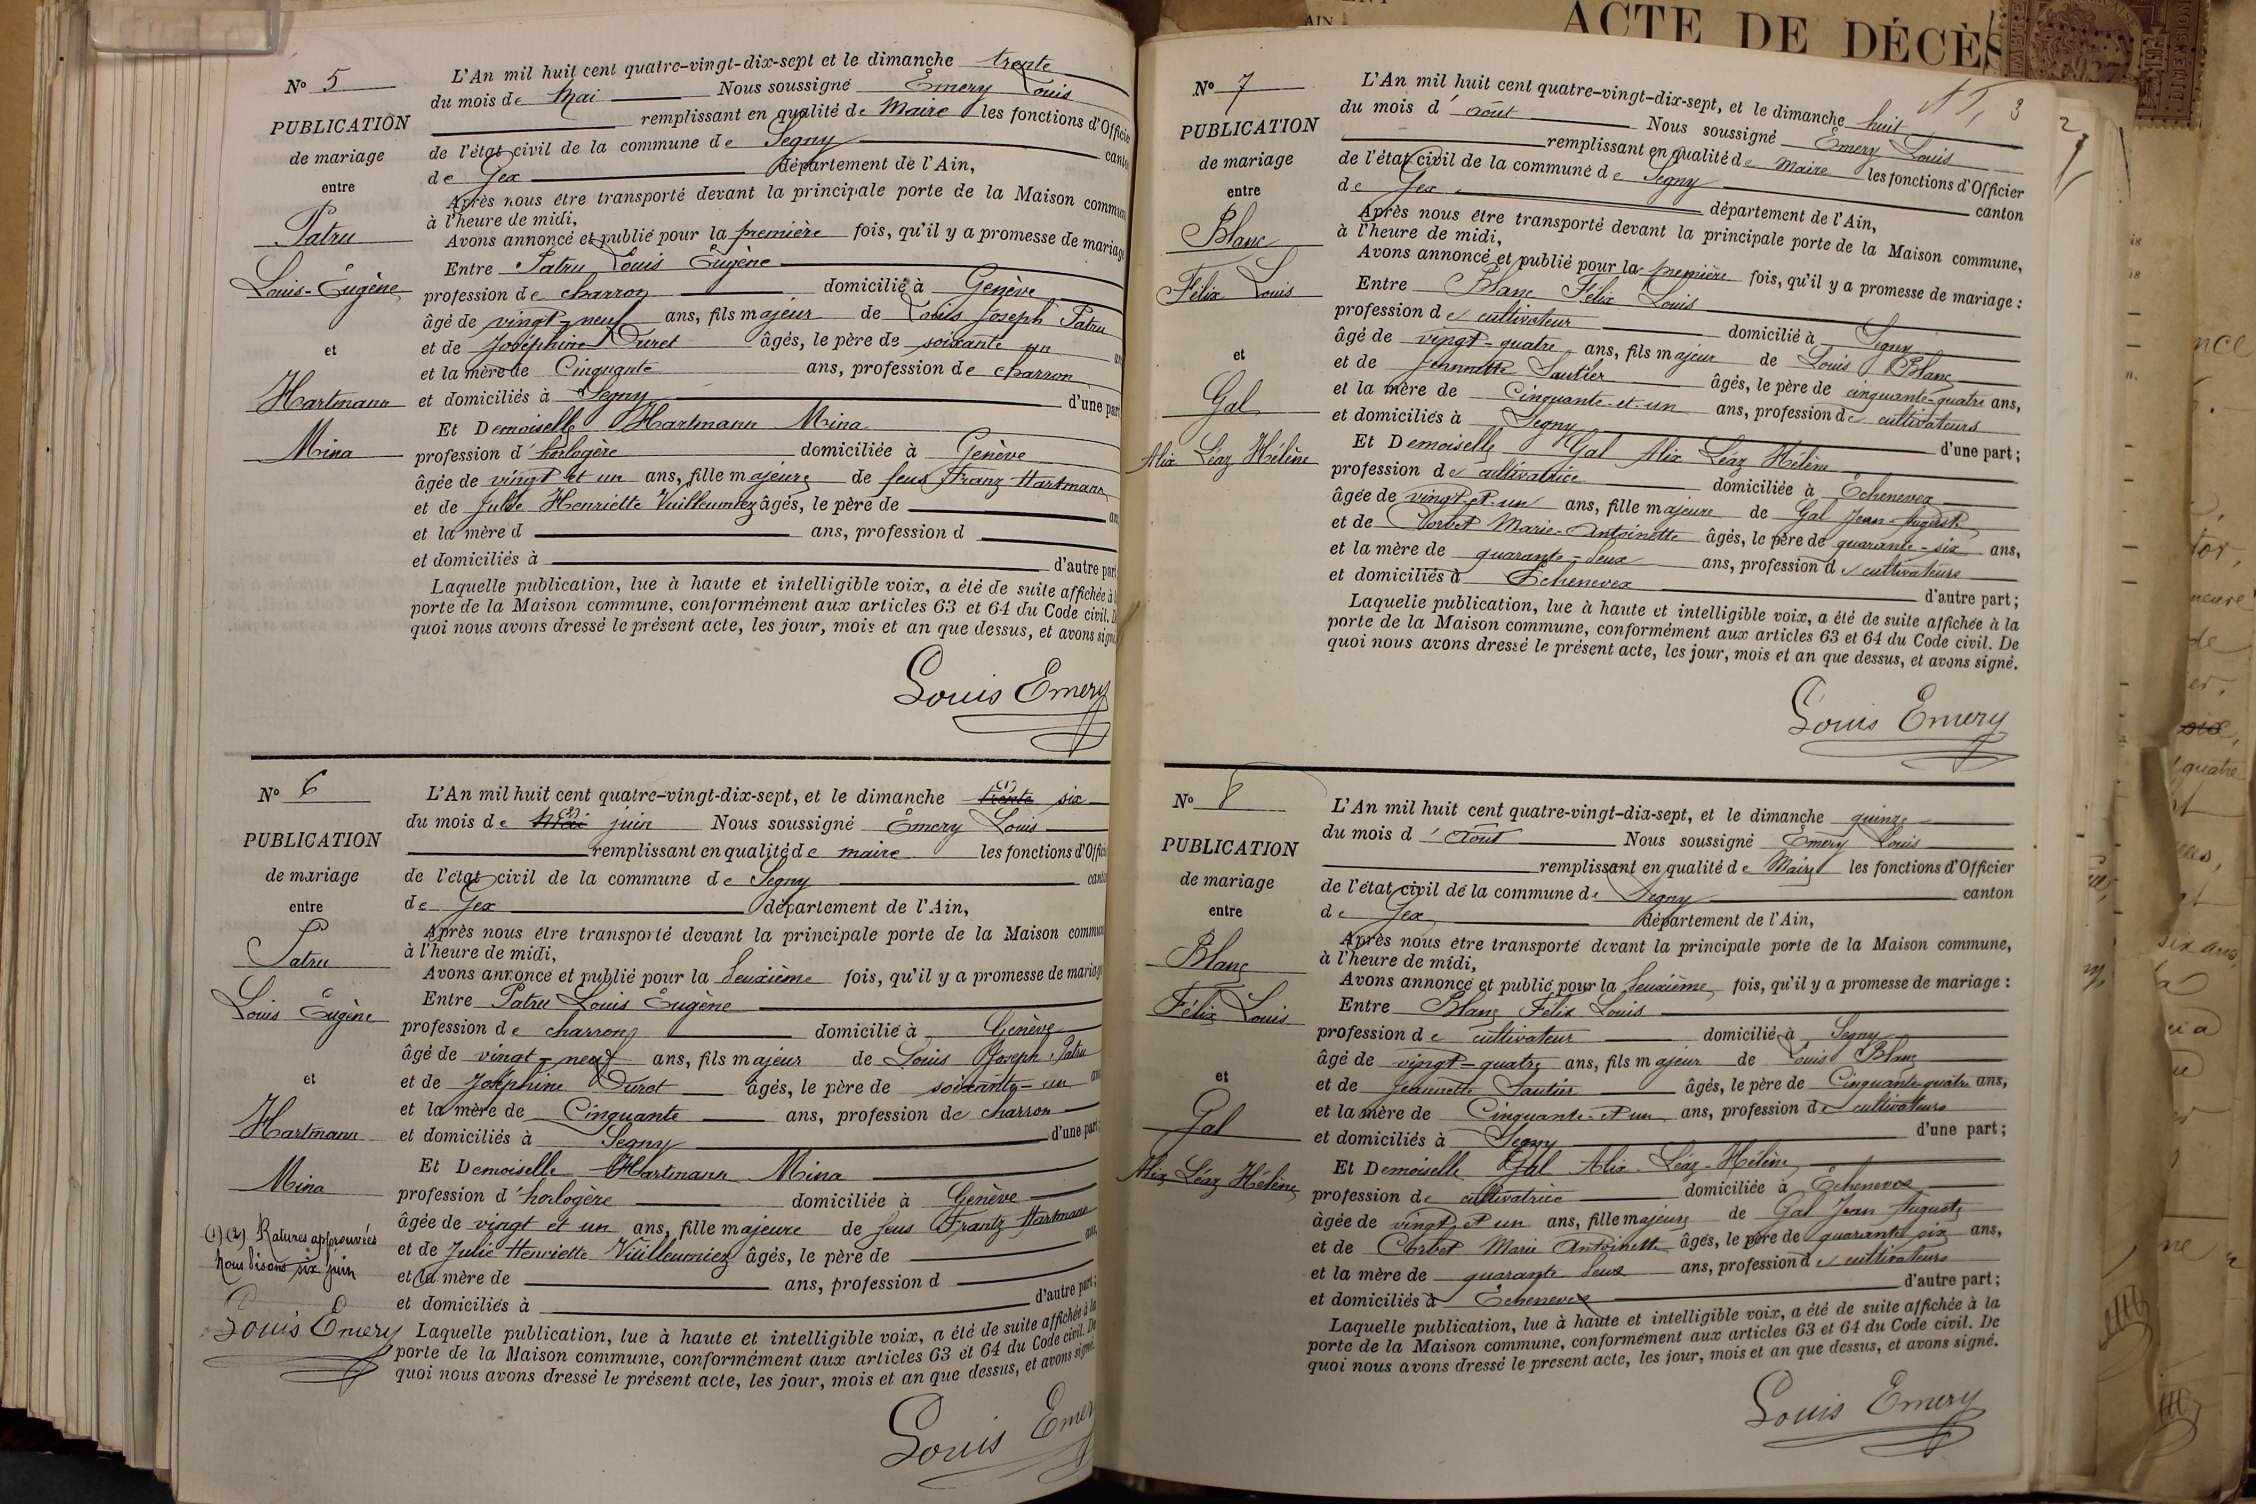 ACTE DE DÉCÈS
AIN
N° 5
PUBLICATION
de mariage
entre
Patru
Louis-Eugène
et
Hartmann
Mina
L'An mil huit cent quatre-vingt-dix-sept et le dimanche trente
du mois de Mai Nous soussigné Emery Louis
remplissant en qualité de Maire les fonctions d'Officier
de l'état civil de la commune de Segny canton
de Gex département de l'Ain,
Après nous être transporté devant la principale porte de la Maison commune
à l'heure de midi,
Avons annoncé et publié pour la première fois, qu'il y a promesse de mariage
Entre Patru Louis Eugène
profession de charron domicilié à Genève
âgé de vingt-neuf ans, fils majeur de Louis Joseph Patru
et de Joséphine Duret âgés, le père de soixante un an
et la mère de Cinquante ans, profession de charron
et domiciliés à Segny d'une part
Et Demoiselle Hartmann Mina
profession d'horlogère domiciliée à Genève
âgée de vingt et un ans, fille majeure de feus Franz Hartmann
et de Julie Henriette Vuilleumiez âgés, le père de an
et la mère d ans, profession d
et domiciliés à d'autre part
Laquelle publication, lue à haute et intelligible voix, a été de suite affichée à la
porte de la Maison commune, conformément aux articles 63 et 64 du Code civil. D
quoi nous avons dressé le présent acte, les jour, mois et an que dessus, et avons signé
Louis Emery
N° 6
PUBLICATION
de mariage
entre
Patru
Louis Eugène
et
Hartmann
Mina
(1) (2) Ratures approuvées
Nous disons six juin
Louis Emery
L'An mil huit cent quatre-vingt-dix-sept, et le dimanche trente (1) six
du mois de Mai (2) juin Nous soussigné Emery Louis
remplissant en qualité de maire les fonctions d'Offici
de l'état civil de la commune de Segny canto
de Gex département de l'Ain,
Après nous être transporté devant la principale porte de la Maison commun
à l'heure de midi,
Avons annoncé et publié pour la deuxième fois, qu'il y a promesse de mariage
Entre Patru Louis Eugène
profession de charron domicilié à Genève
âgé de vingt-neuf ans, fils majeur de Louis Joseph Patru
et de Joséphine Duret âgés, le père de soixante-un an
et la mère de Cinquante ans, profession de charron
et domiciliés à Segny d'une part;
Et Demoiselle Hartmann Mina
profession d'horlogère domiciliée à Genève
âgée de vingt et un ans, fille majeure de feus Frantz Hartmann
et de Julie Henriette Vuilleumiez âgés, le père de ans,
et la mère de ans, profession d
et domiciliés à d'autre part;
Laquelle publication, lue à haute et intelligible voix, a été de suite affichée à la
porte de la Maison commune, conformément aux articles 63 et 64 du Code civil. De
quoi nous avons dressé le présent acte, les jour, mois et an que dessus, et avons signé.
Louis Emery
3
N° 7
PUBLICATION
de mariage
entre
Blanc
Félix Louis
et
Gal
Alix Léaz Hélène
L'An mil huit cent quatre-vingt-dix-sept, et le dimanche huit
du mois d'août Nous soussigné Emery Louis
remplissant en qualité de maire les fonctions d'Officier
de l'état civil de la commune de Segny canton
de Gex département de l'Ain,
Après nous être transporté devant la principale porte de la Maison commune,
à l'heure de midi,
Avons annoncé et publié pour la première fois, qu'il y a promesse de mariage :
Entre Blanc Félix Louis
profession de cultivateur domicilié à Segny
âgé de vingt-quatre ans, fils majeur de Louis Blanc
et de Jeannette Sautier âgés, le père de cinquante-quatre ans,
et la mère de Cinquante-et-un ans, profession de cultivateurs
et domiciliés à Segny d'une part;
Et Demoiselle Gal Alix Léaz Hélène
profession de cultivatrice domiciliée à Echenevex
âgée de vingt-et-un ans, fille majeure de Gal Jean-Auguste
et de Corbet Marie-Antoinette âgés, le père de quarante-six ans,
et la mère de quarante-deux ans, profession de cultivateurs
et domiciliés à Echenevex d'autre part;
Laquelle publication, lue à haute et intelligible voix, a été de suite affichée à la
porte de la Maison commune, conformément aux articles 63 et 64 du Code civil. De
quoi nous avons dressé le présent acte, les jour, mois et an que dessus, et avons signé.
Louis Emery
N° 8
PUBLICATION
de mariage
entre
Blanc
Félix Louis
et
Gal
Alix Léaz Hélène
L'An mil huit cent quatre-vingt-dix-sept, et le dimanche quinze
du mois d'Août Nous soussigné Emery Louis
remplissant en qualité de Maire les fonctions d'Officier
de l'état civil de la commune de Segny canton
de Gex département de l'Ain,
Après nous être transporté devant la principale porte de la Maison commune,
à l'heure de midi,
Avons annoncé et publié pour la deuxième fois, qu'il y a promesse de mariage :
Entre Blanc Félix Louis
profession de cultivateur domicilié à Segny
âgé de vingt-quatre ans, fils majeur de Louis Blanc
et de Jeannette Sautier âgés, le père de Cinquante-quatre ans,
et la mère de Cinquante-et un ans, profession de cultivateurs
et domiciliés à Segny d'une part;
Et Demoiselle Gal Alix-Léaz-Hélène
profession de cultivatrice domiciliée à Echenevex
âgée de vingt et un ans, fille majeure de Gal Jean Auguste
et de Corbet Marie Antoinette âgés, le père de quarante six ans,
et la mère de quarante deux ans, profession de cultivateurs
et domiciliés à Echenevex d'autre part;
Laquelle publication, lue à haute et intelligible voix, a été de suite affichée à la
porte de la Maison commune, conformément aux articles 63 et 64 du Code civil. De
quoi nous avons dressé le présent acte, les jour, mois et an que dessus, et avons signé.
Louis Emery